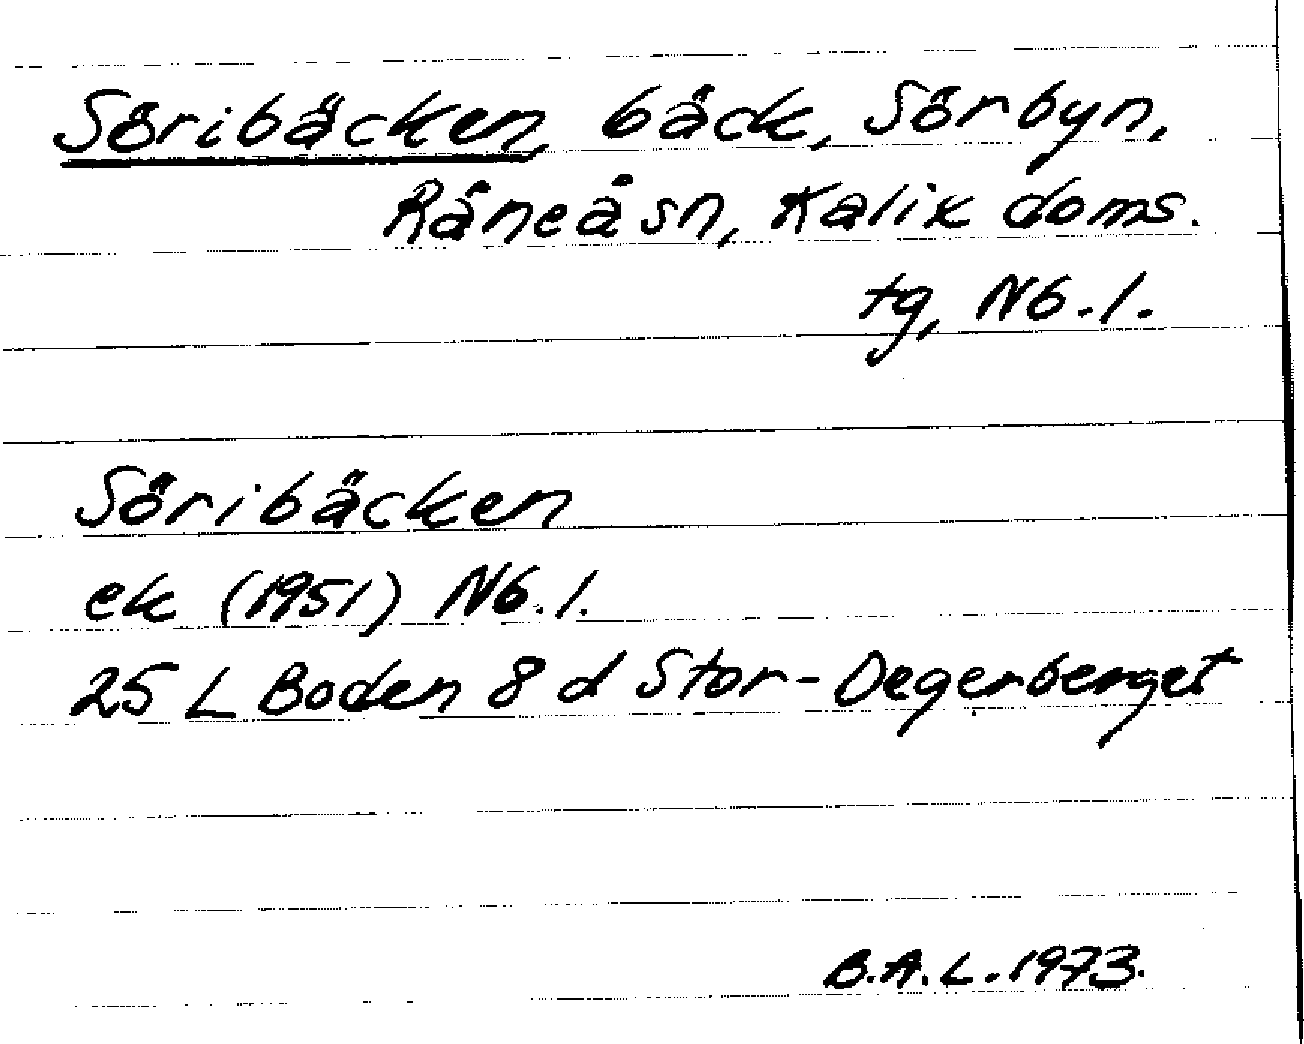 Söribäcken, bäck, Sörbyn,
Råneå sn, Kalix doms.
tg, Nb.l.
Söribäcken
ek (1951) Nb.l.
25 L Boden 8 d Stor-Degerberget
B.A.L. 1973.